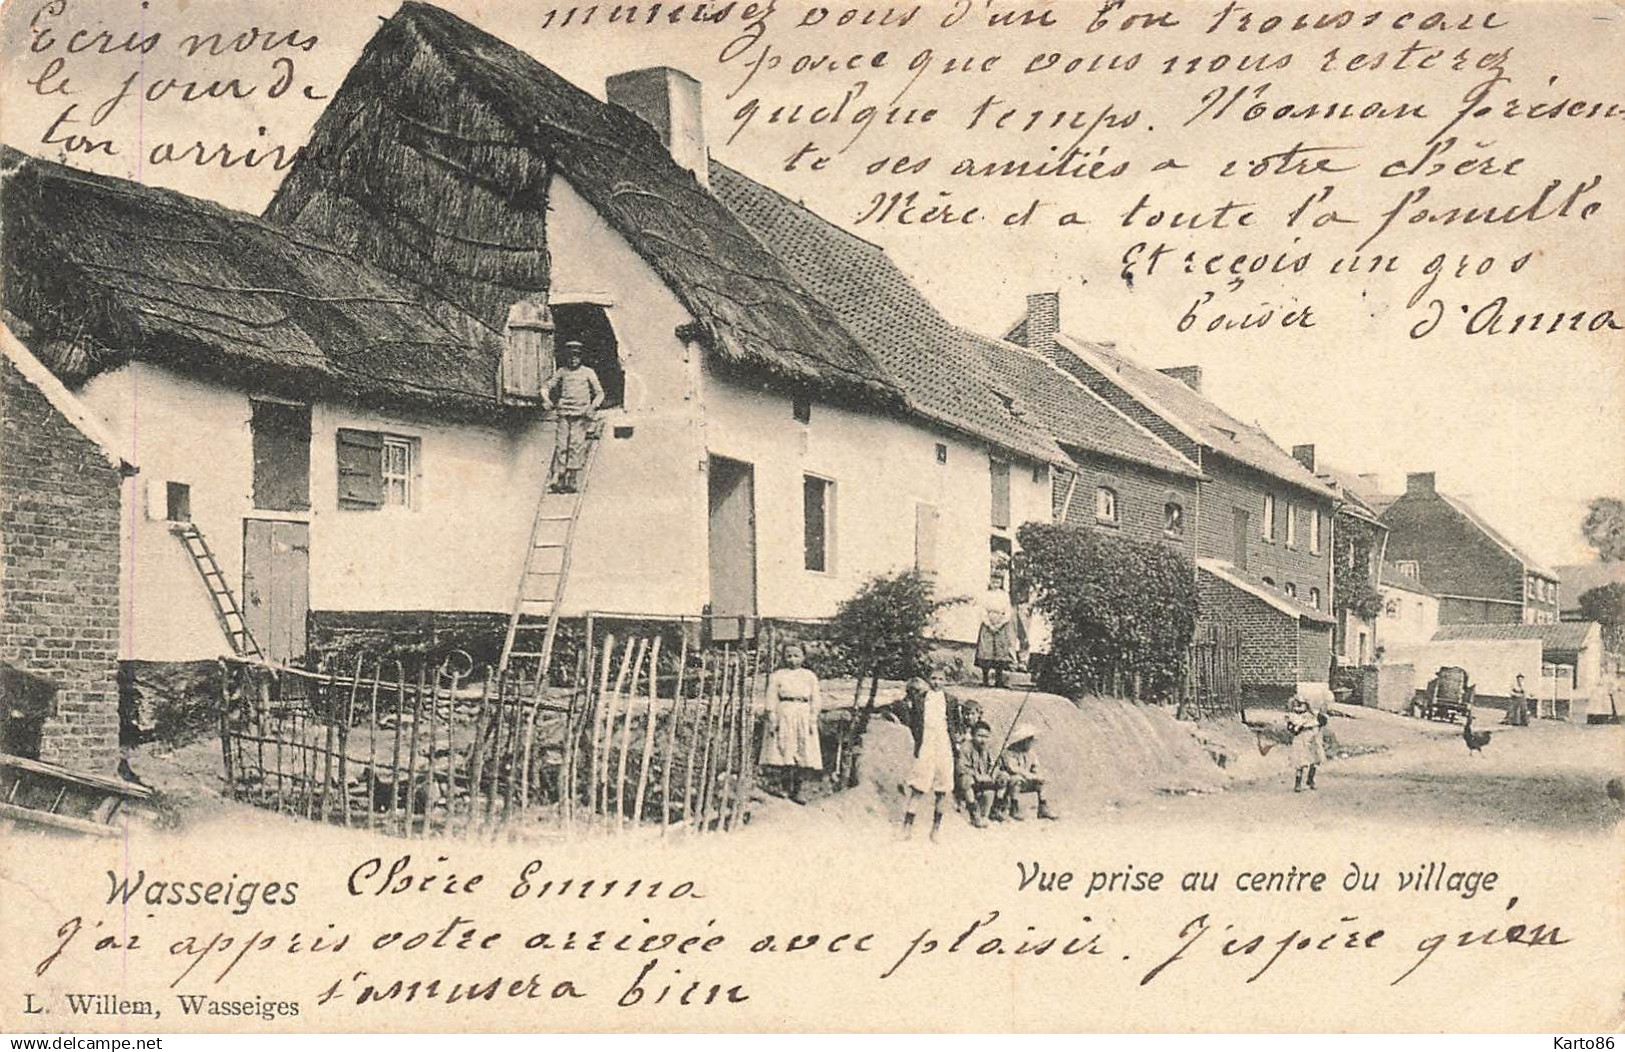 munisez vous d'un bon trousseau
parce que vous nous resterez
quelque temps. Maman présen
te ses amitiés a votre chère
Mère et a toute la famille
Et reçois un gros
baiser d'Anna
Ecris nous
le jour de
ton arrivée
Wasseiges
Chère Emma
Vue prise au centre du village
J'ai appris votre arrivée avec plaisir. J'espère qu'en
s'amusera bien
L. Willem, Wasseiges
delcampe.net
Karto86